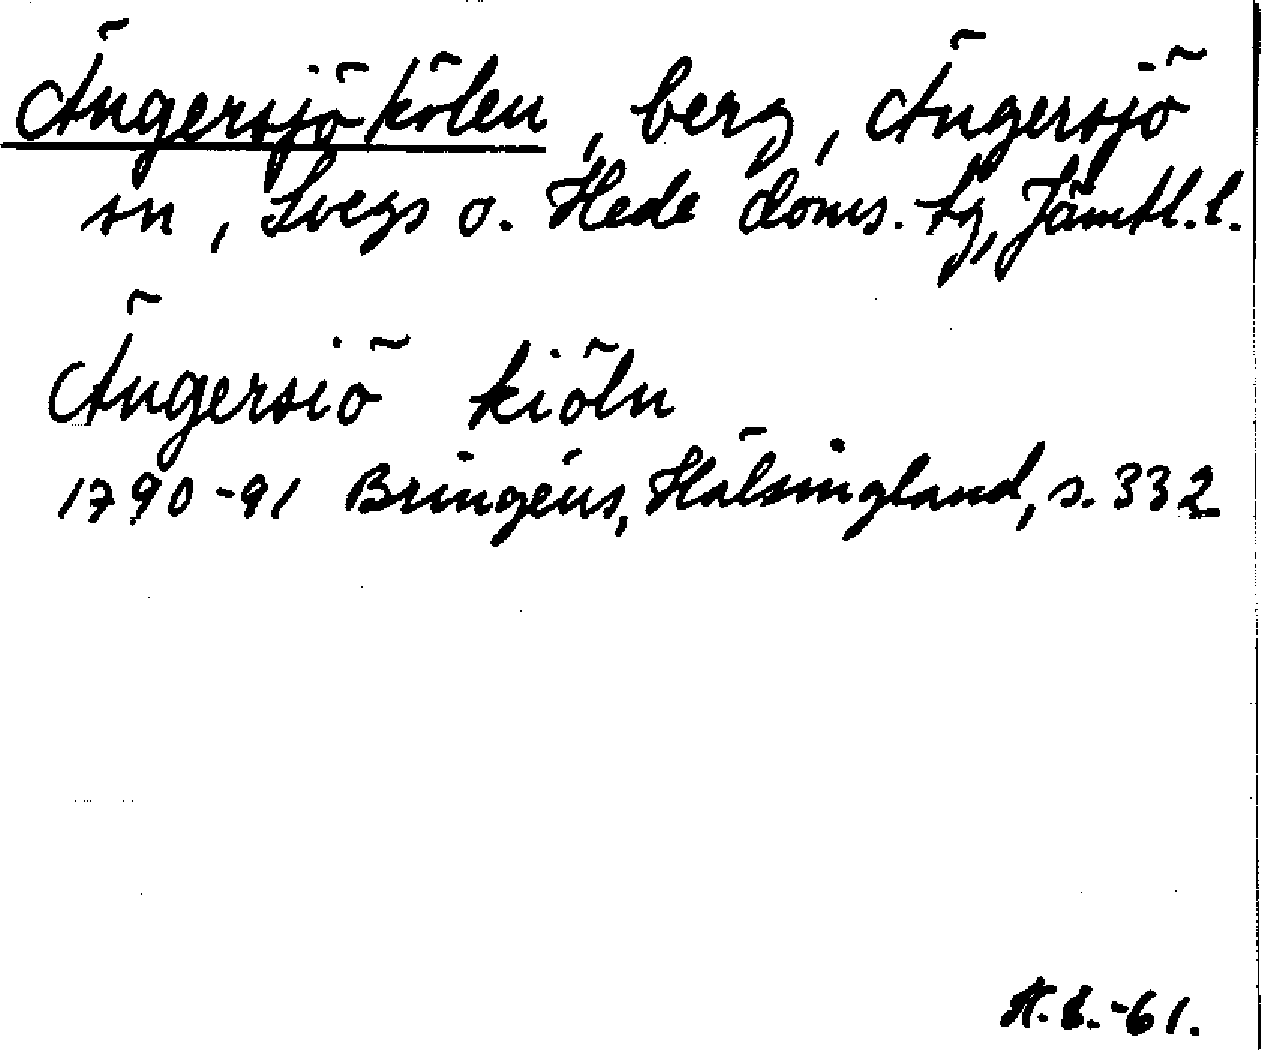 Ängersjökölen, berg, Ängersjö
sn, Svegs o. Hede doms.-tg, Jämtl. l.
Ängersiö kiöln
1790-91 Bringéus, Hälsingland, s. 332
-61.